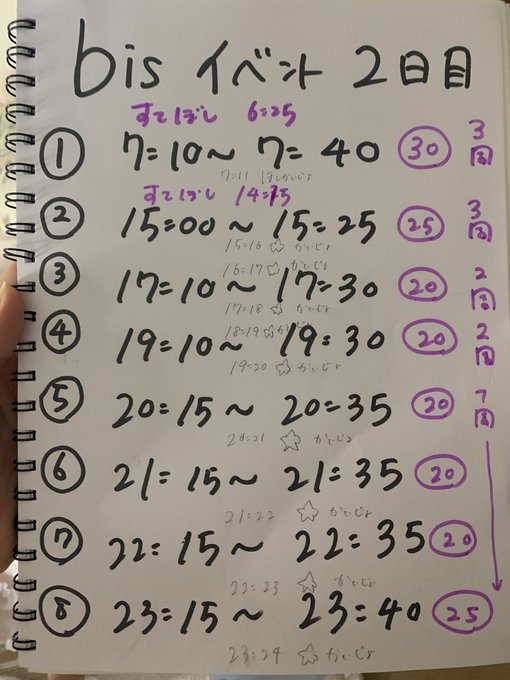 bis イベント 2日目
すてぼし 6:25
① 7:10～7:40 30 3回
7:11 ほしかいじょ
すてぼし 14:15
② 15:00～15:25 25 3回
15:16 ☆ かいじょ
16:17 ☆ かいじょ
③ 17:10～17:30 20 2回
17:18 ☆ かいじょ
18:19 ☆ かいじょ
④ 19:10～19:30 20 2回
19:20 ☆ かいじょ
⑤ 20:15～20:35 20 1回
20:21 ☆ かいじょ
⑥ 21:15～21:35 20
21:22 ☆ かいじょ
⑦ 22:15～22:35 20
22:23 ☆ かいじょ
⑧ 23:15～23:40 25
23:24 ☆ かいじょ